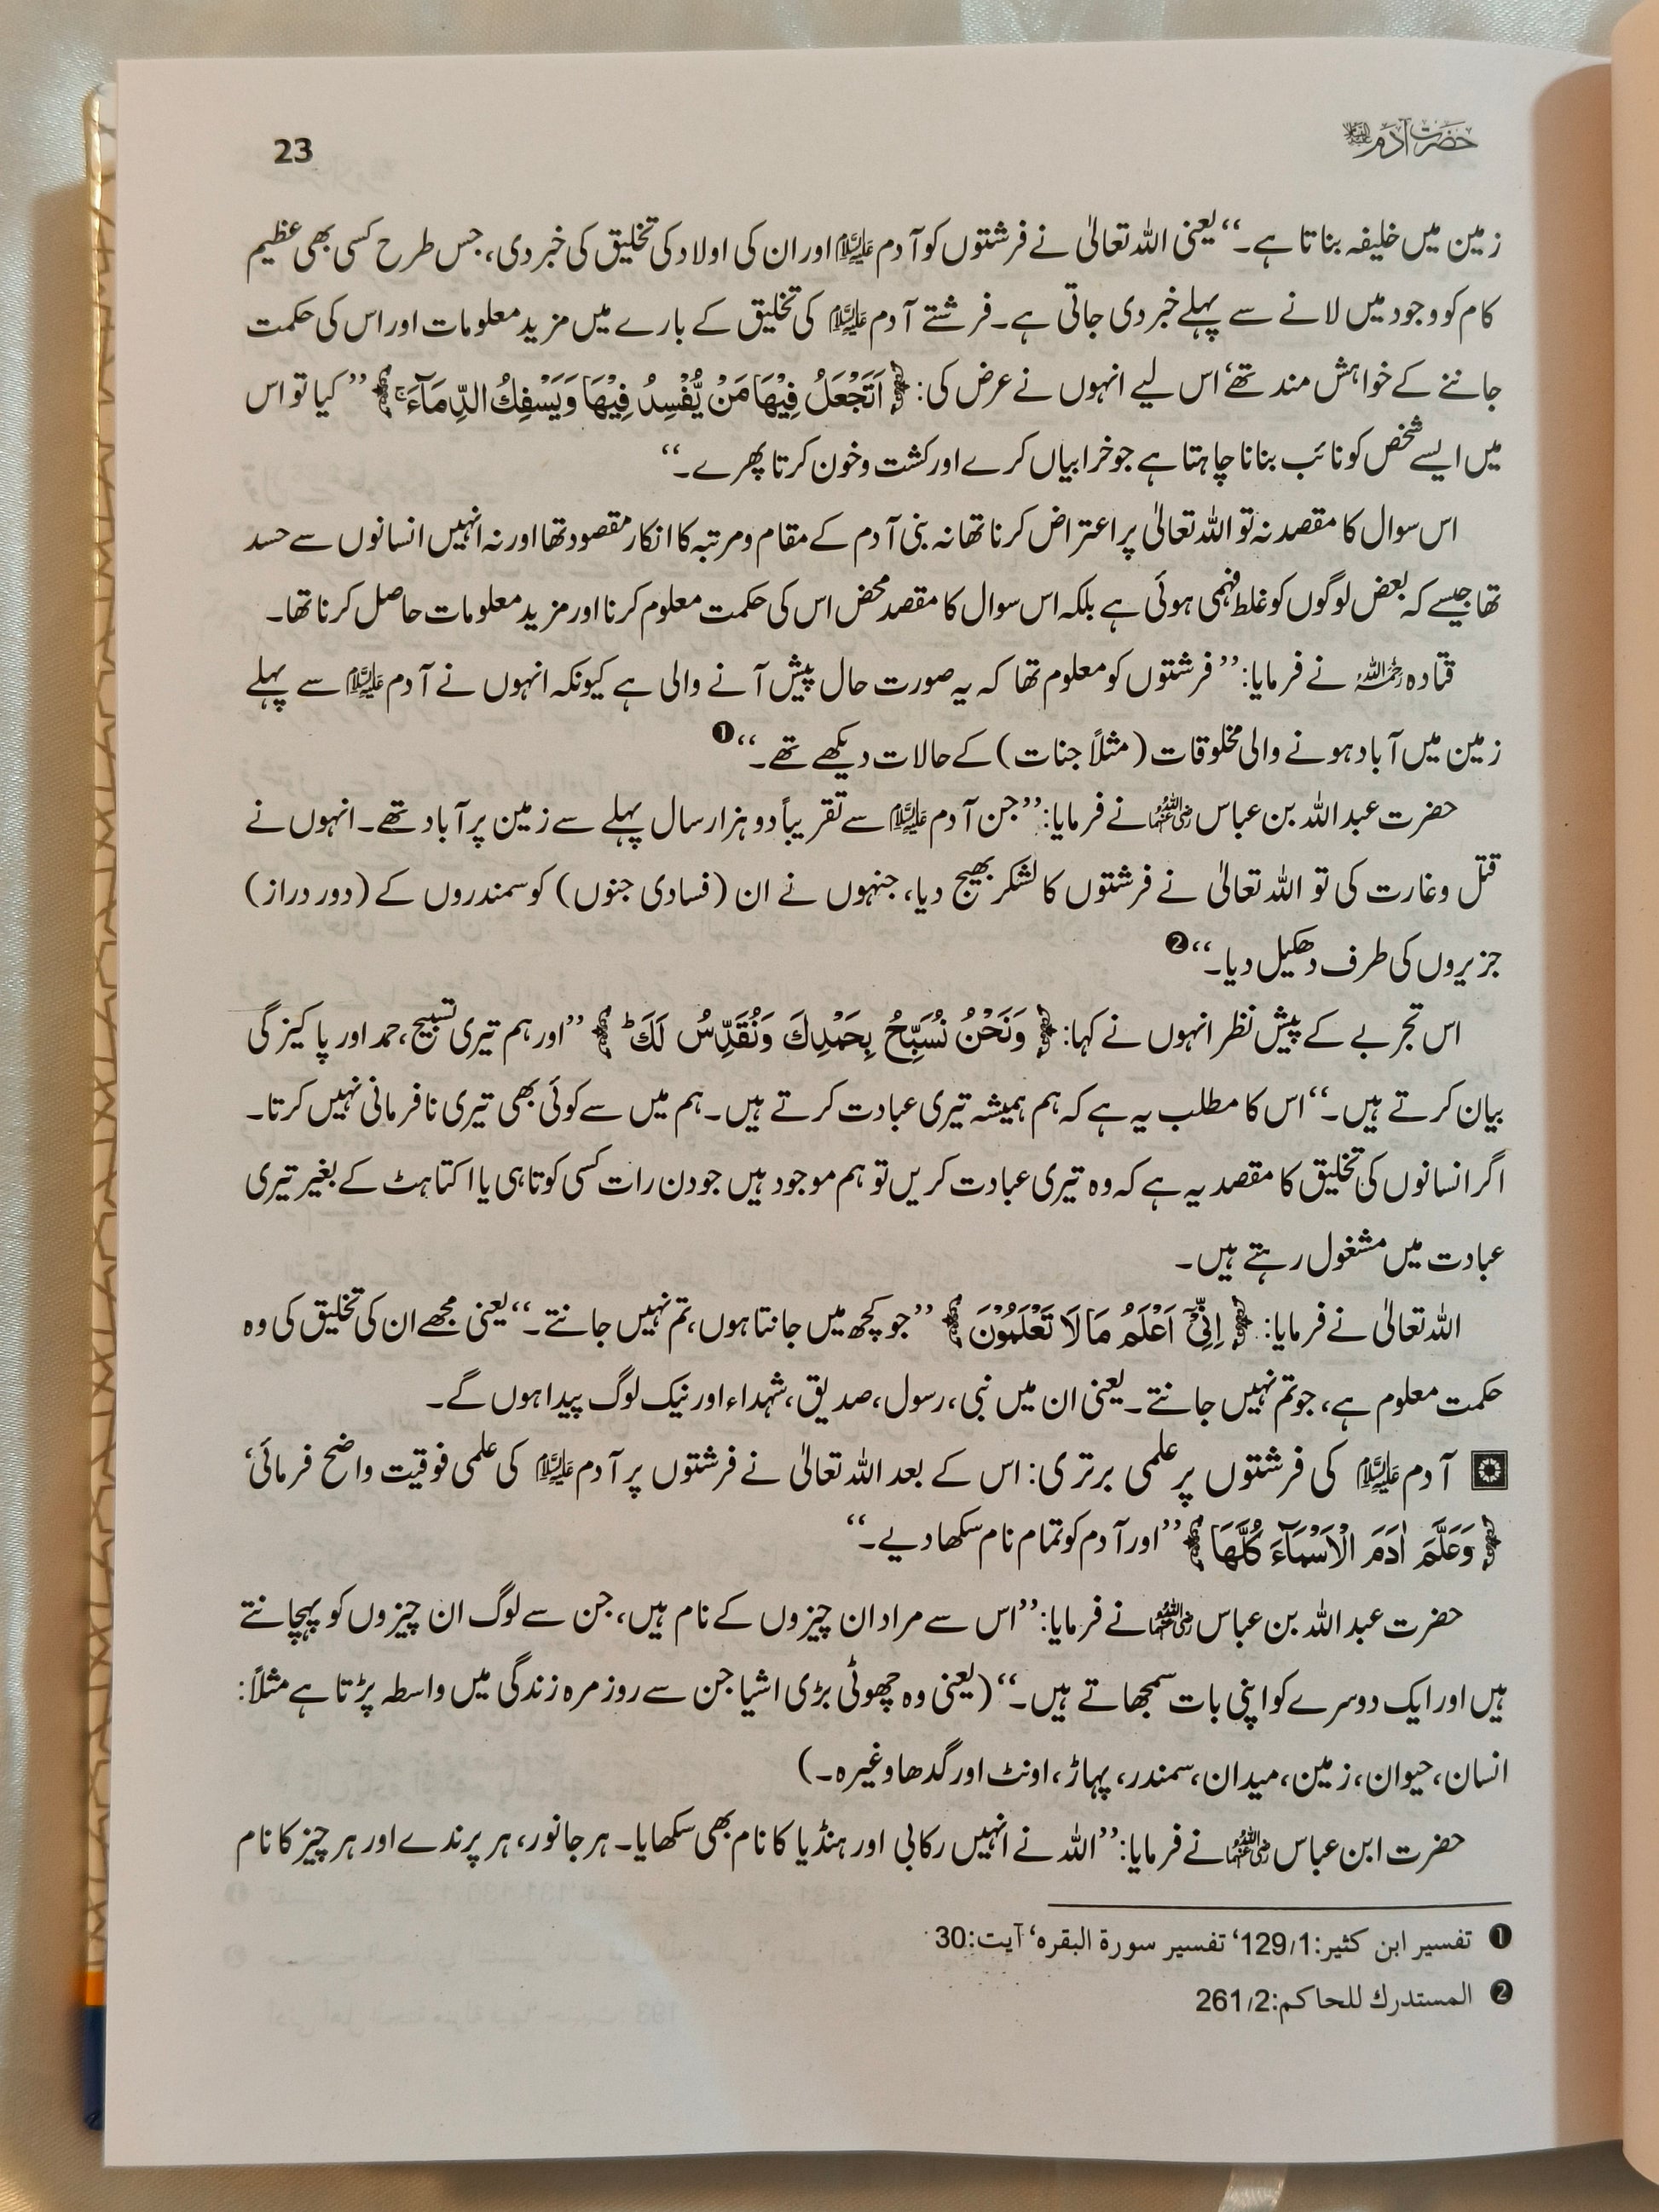 حضرت آدم علیہ السلام
23
زمین میں خلیفہ بناتا ہے۔‘‘ یعنی اللہ تعالیٰ نے فرشتوں کو آدم علیہ السلام اور ان کی اولاد کی تخلیق کی خبر دی، جس طرح کسی بھی عظیم
کام کو وجود میں لانے سے پہلے خبر دی جاتی ہے۔ فرشتے آدم علیہ السلام کی تخلیق کے بارے میں مزید معلومات اور اس کی حکمت
جاننے کے خواہش مند تھے‘ اس لیے انہوں نے عرض کی: ﴿ اَتَجْعَلُ فِیْهَا مَنْ یُّفْسِدُ فِیْهَا وَیَسْفِكُ الدِّمَآءَ ۚ ﴾ ’’ کیا تو اس
میں ایسے شخص کو نائب بنانا چاہتا ہے جو خرابیاں کرے اور کشت و خون کرتا پھرے۔‘‘
اس سوال کا مقصد نہ تو اللہ تعالیٰ پر اعتراض کرنا تھا نہ بنی آدم کے مقام و مرتبہ کا انکار مقصود تھا اور نہ انہیں انسانوں سے حسد
تھا جیسے کہ بعض لوگوں کو غلط فہمی ہوئی ہے بلکہ اس سوال کا مقصد محض اس کی حکمت معلوم کرنا اور مزید معلومات حاصل کرنا تھا۔
قتادہ رحمہ اللہ نے فرمایا: ’’ فرشتوں کو معلوم تھا کہ یہ صورت حال پیش آنے والی ہے کیونکہ انہوں نے آدم علیہ السلام سے پہلے
زمین میں آباد ہونے والی مخلوقات (مثلاً جنات) کے حالات دیکھے تھے۔‘‘ ❶
حضرت عبداللہ بن عباس رضی اللہ عنہما نے فرمایا: ’’ جن آدم علیہ السلام سے تقریباً دو ہزار سال پہلے سے زمین پر آباد تھے۔ انہوں نے
قتل و غارت کی تو اللہ تعالیٰ نے فرشتوں کا لشکر بھیج دیا، جنہوں نے ان (فسادی جنوں) کو سمندروں کے (دور دراز)
جزیروں کی طرف دھکیل دیا۔‘‘ ❷
اس تجربے کے پیش نظر انہوں نے کہا: ﴿ وَنَحْنُ نُسَبِّحُ بِحَمْدِكَ وَنُقَدِّسُ لَكَ ؕ ﴾ ’’ اور ہم تیری تسبیح، حمد اور پاکیزگی
بیان کرتے ہیں۔‘‘ اس کا مطلب یہ ہے کہ ہم ہمیشہ تیری عبادت کرتے ہیں۔ ہم میں سے کوئی بھی تیری نافرمانی نہیں کرتا۔
اگر انسانوں کی تخلیق کا مقصد یہ ہے کہ وہ تیری عبادت کریں تو ہم موجود ہیں جو دن رات کسی کوتاہی یا اکتاہٹ کے بغیر تیری
عبادت میں مشغول رہتے ہیں۔
اللہ تعالیٰ نے فرمایا: ﴿ اِنِّیْۤ اَعْلَمُ مَا لَا تَعْلَمُوْنَ ﴾ ’’ جو کچھ میں جانتا ہوں، تم نہیں جانتے۔‘‘ یعنی مجھے ان کی تخلیق کی وہ
حکمت معلوم ہے، جو تم نہیں جانتے۔ یعنی ان میں نبی، رسول، صدیق، شہداء اور نیک لوگ پیدا ہوں گے۔
آدم علیہ السلام کی فرشتوں پر علمی برتری: اس کے بعد اللہ تعالیٰ نے فرشتوں پر آدم علیہ السلام کی علمی فوقیت واضح فرمائی‘
﴿ وَعَلَّمَ اٰدَمَ الْاَسْمَآءَ كُلَّهَا ﴾ ’’ اور آدم کو تمام نام سکھا دیے۔‘‘
حضرت عبداللہ بن عباس رضی اللہ عنہما نے فرمایا: ’’ اس سے مراد ان چیزوں کے نام ہیں، جن سے لوگ ان چیزوں کو پہچانتے
ہیں اور ایک دوسرے کو اپنی بات سمجھاتے ہیں۔‘‘ (یعنی وہ چھوٹی بڑی اشیا جن سے روزمرہ زندگی میں واسطہ پڑتا ہے مثلاً:
انسان، حیوان، زمین، میدان، سمندر، پہاڑ، اونٹ اور گدھا وغیرہ۔)
حضرت ابن عباس رضی اللہ عنہما نے فرمایا: ’’ اللہ نے انہیں رکابی اور ہنڈیا کا نام بھی سکھایا۔ ہر جانور، ہر پرندے اور ہر چیز کا نام
❶ تفسیر ابن کثیر: 129/1‘ تفسیر سورۃ البقرہ‘ آیت: 30
❷ المستدرك للحاكم: 261/2